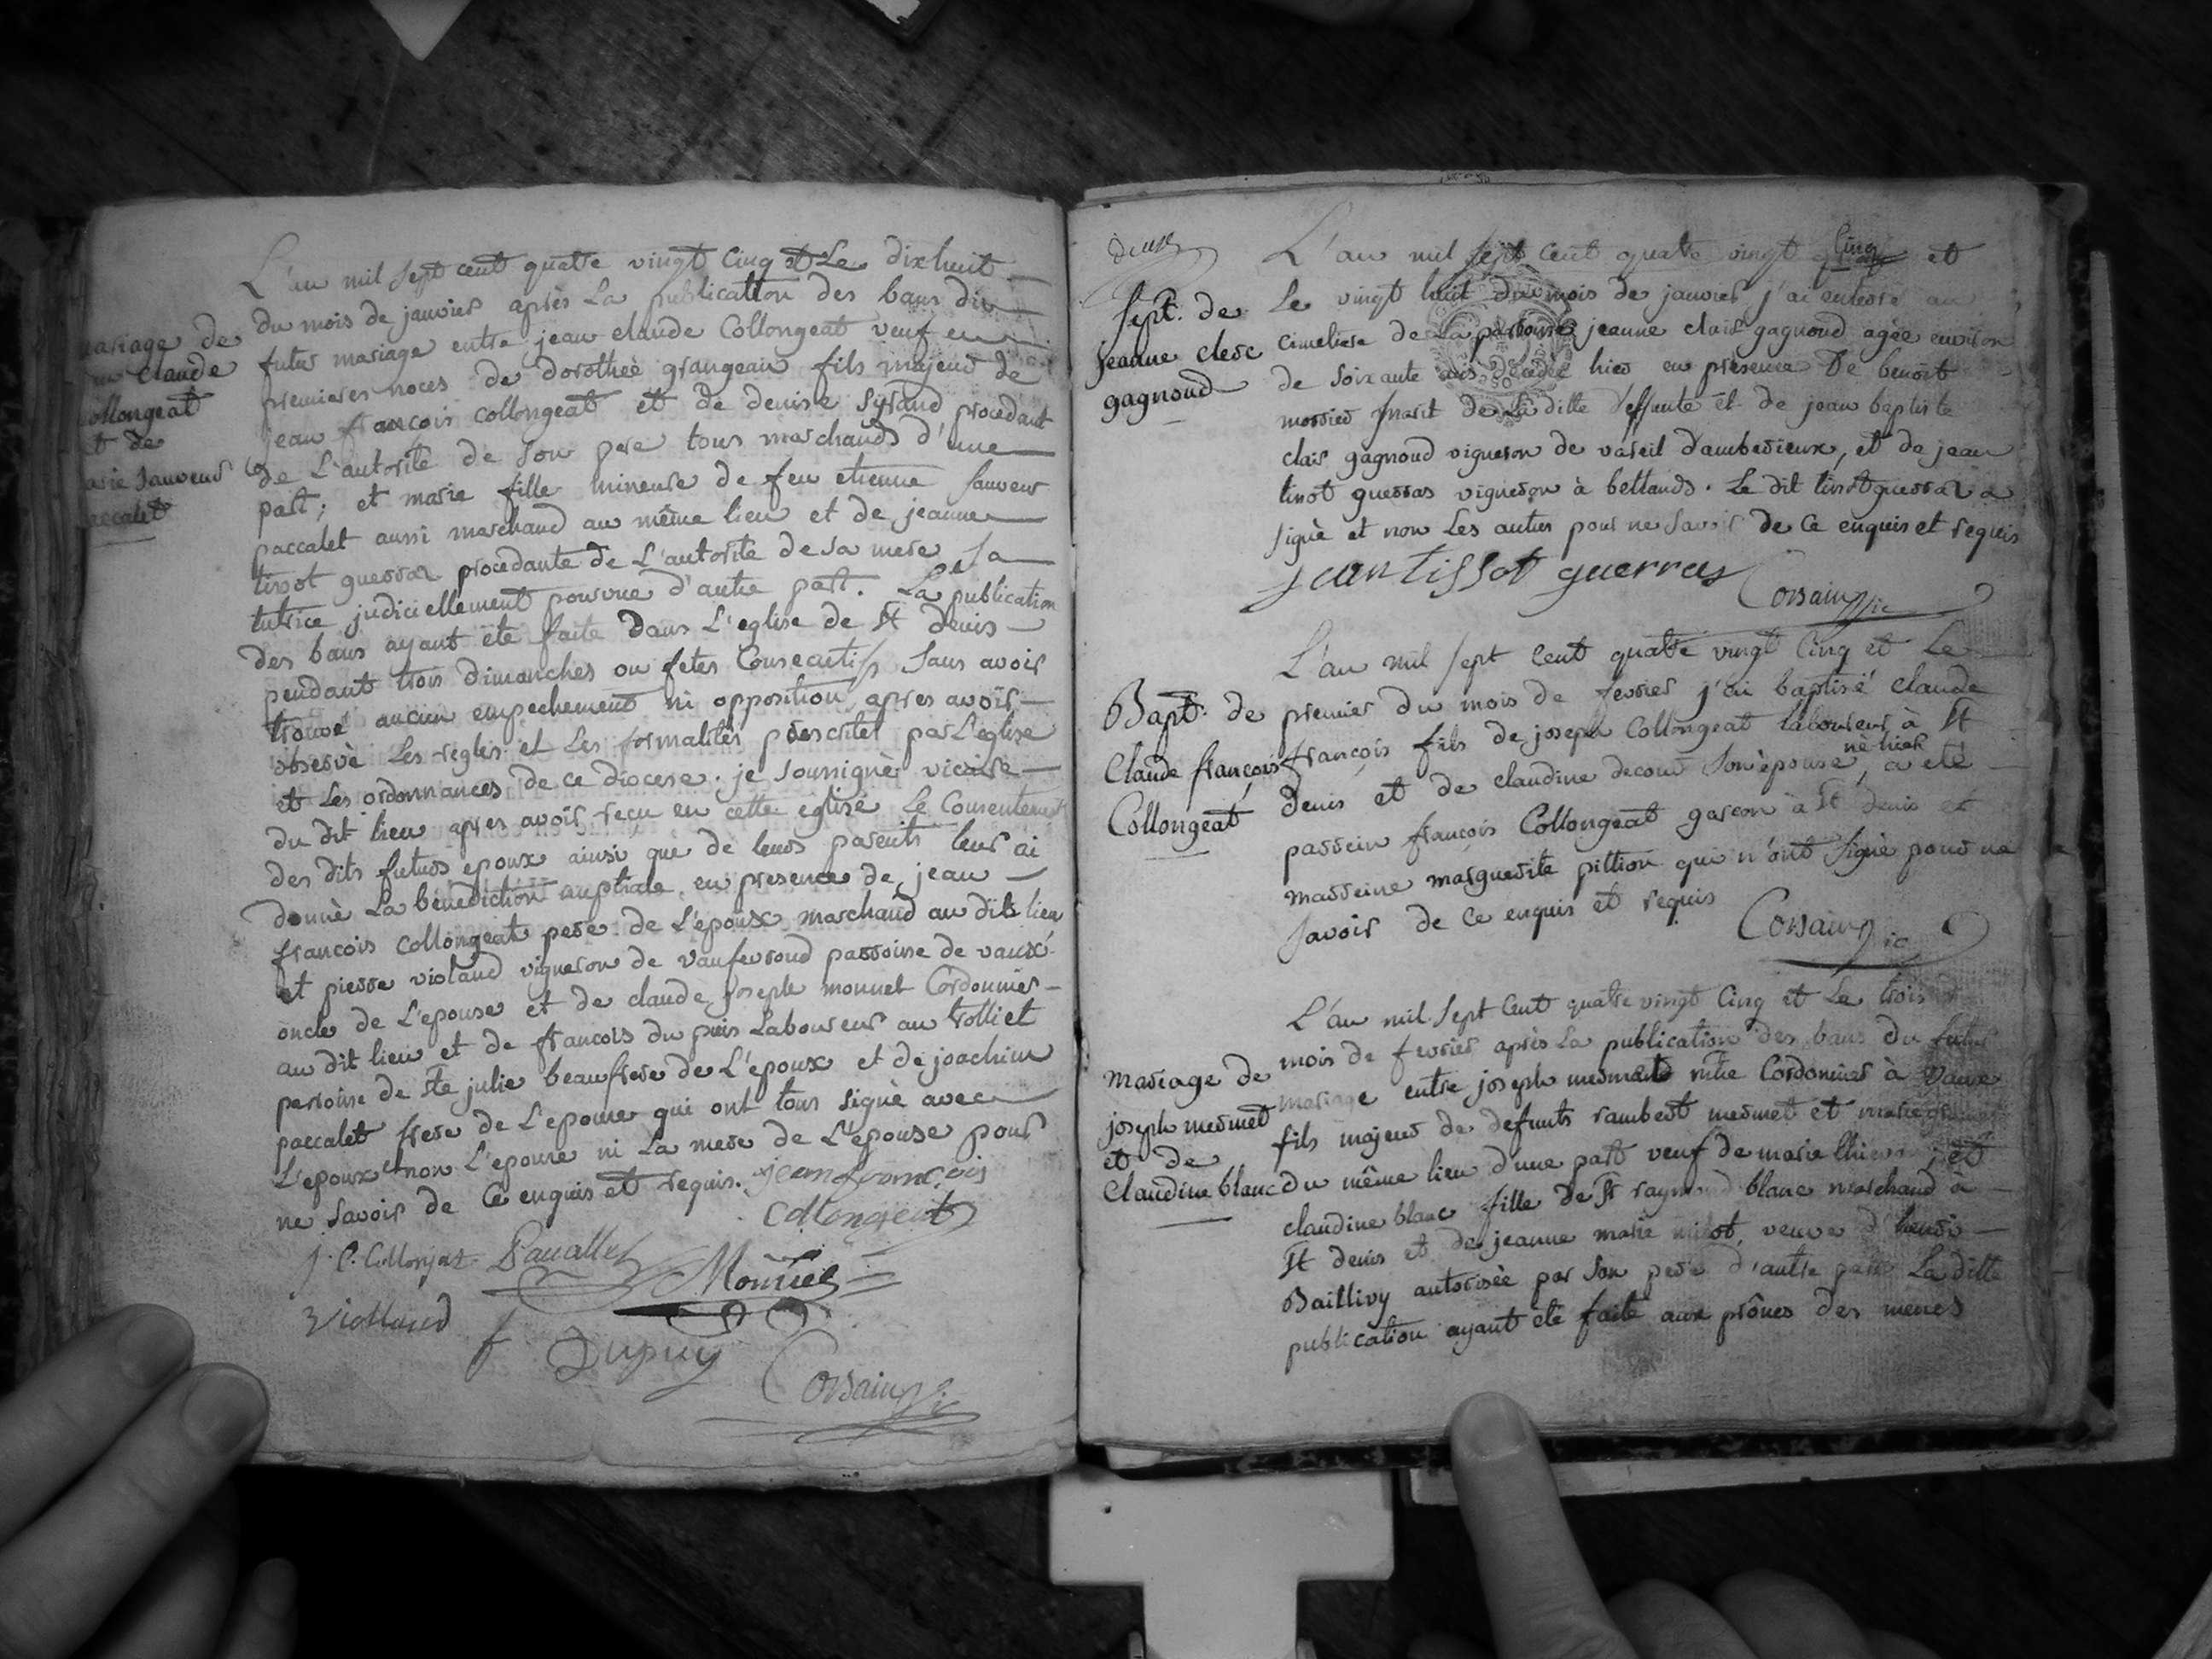 mariage de
Claude
ollongeat
et de
arie Sauveur
accalet
L'an mil sept cent quatre vingt Cinq et Le dixhuit
du mois de janvier après La publication des bans du
futur mariage entre jean claude Collongeat veuf en
premieres noces de dorotheè grangeau fils majeur de
jean françois collongeat et de denise Syrand procedant
de L'autorite de son pere tous marchands d'une
part; et marie fille mineure de feu etienne Sauveur
paccalet aussi marchand au même lieu et de jeanne
tissot guerraz procedante de L'autorite de sa mere, sa
tutrice judiciellement pourvue d'autre part. La publication
des bans ayant ete faite dans L'eglise de St denis
pendant trois dimanches ou fetes Consecutifs Sans avoir
trouvé aucun empechement ni opposition, apres avoir
observè Les regles et Les formalités prescrites par L'eglise
et Les ordonnances de ce diocese. je soussignèr vicaire
du dit lieu apres avoir reçu en cette eglise Le Consentement
des dits futurs epoux ainsi que de leurs parents leur ai
donnè La bènediction nuptiale, en presence de, jean
françois collongeat pere de L'epoux marchand au dit lieu
et pierre violand vigneron de vaufevroud parroisse de vaux
oncle de L'epouse et de claude joseph monnet Cordonnier
au dit lieu et de francois du puis Laboureur au trolliet
perroisse de Ste julie beaufrere de L'époux et de joachim
paccalet frere de L'epouse qui ont tous signè avec
L'epoux et non L'epouse ni La mere de L'èpouse pour
ne savoir de Ce enquis et requis. jean francois
collongeat
j. C. Collonjat Paccallet Monnet
Violland f Dupuy
Corsain vic
deux
Sept. de
jeanne clerc
gagnoud
L'an mil sept Cent quatre vingt Cinq et
Le vingt huit du mois de janvier j'ai enterrè au
cimetiere de La parroisse jeanne clair gagnoud agèe environ
de soixante ans decedèe hier en presence de benoit
morrier marit de La ditte deffunte et de jean baptiste
clair gagnoud vigneron de vareil d'amberieux, et de jean
tissot guerras vigneron à bettands. Le dit tissot guerraz a
signè et non Les autres pour ne Savoir de Ce enquis et requis
jean tissot guerras
Corsain vic
Bapt. de
Claude françois
Collongeat
L'an mil sept Cent quatre vingt Cinq et Le
premier du mois de fevrier j'ai baptisé claude
françois fils de joseph Collongeat laboureur à St
né hier
denis et de claudine decour Son èpouse, a eté
parrein françois Collongeat garcon à St denis et
marreine marguerite pittion qui n'ont signè pour ne
savoir de Ce enquis et requis
Corsain vic
Mariage de
joseph mermet
et de
Claudine blanc
L'an mil Sept Cent quatre vingt Cinq et Le trois
mois de fevrier après La publication des bans du futur
mariage entre joseph mermet mtre Cordonnier à Vaux
fils majeur de defunts rambert mermet et marie
du même lieu d'une part veuf de marie et
claudine blanc fille de Sr raymond blanc marchand à
St denis et de jeanne marie veuve d'henri
Baillivy autorisèe par Son pere d'autre part La ditte
publication ayant ete faite aux prônes des messes